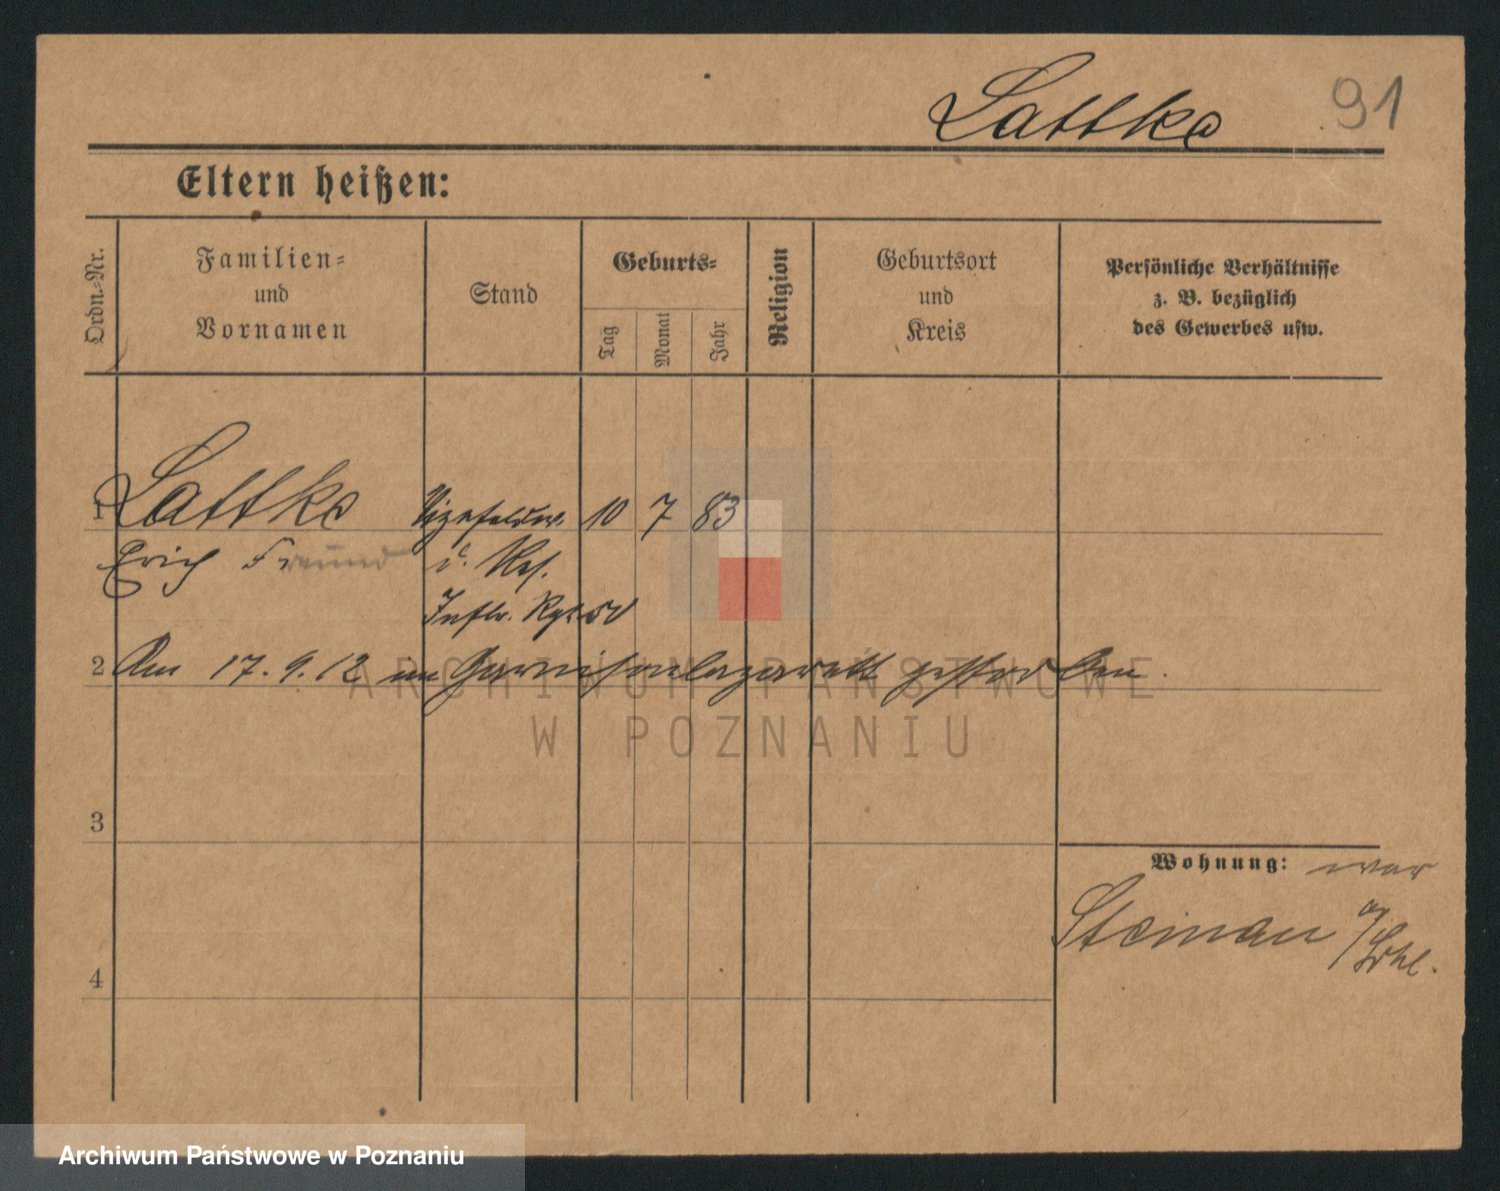 Lattke 91
Eltern heißen:
Ordn.-Nr.
Familien-
und
Vornamen
Stand
Geburts-
Tag
Monat
Jahr
Religion
Geburtsort
und
Kreis
Persönliche Verhältnisse
z. B. bezüglich
des Gewerbes usw.
1 Lattke Vizefeldw. 10 7 83
Erich d. Res.
Inftr. Rgt. 50
2 Am 17.9.12 im Garnisonlazarett gestorben.
ARCHIWUM PAŃSTWOWE
W POZNANIU
3
Wohnung: war
Steinau a/
4
Archiwum Państwowe w Poznaniu